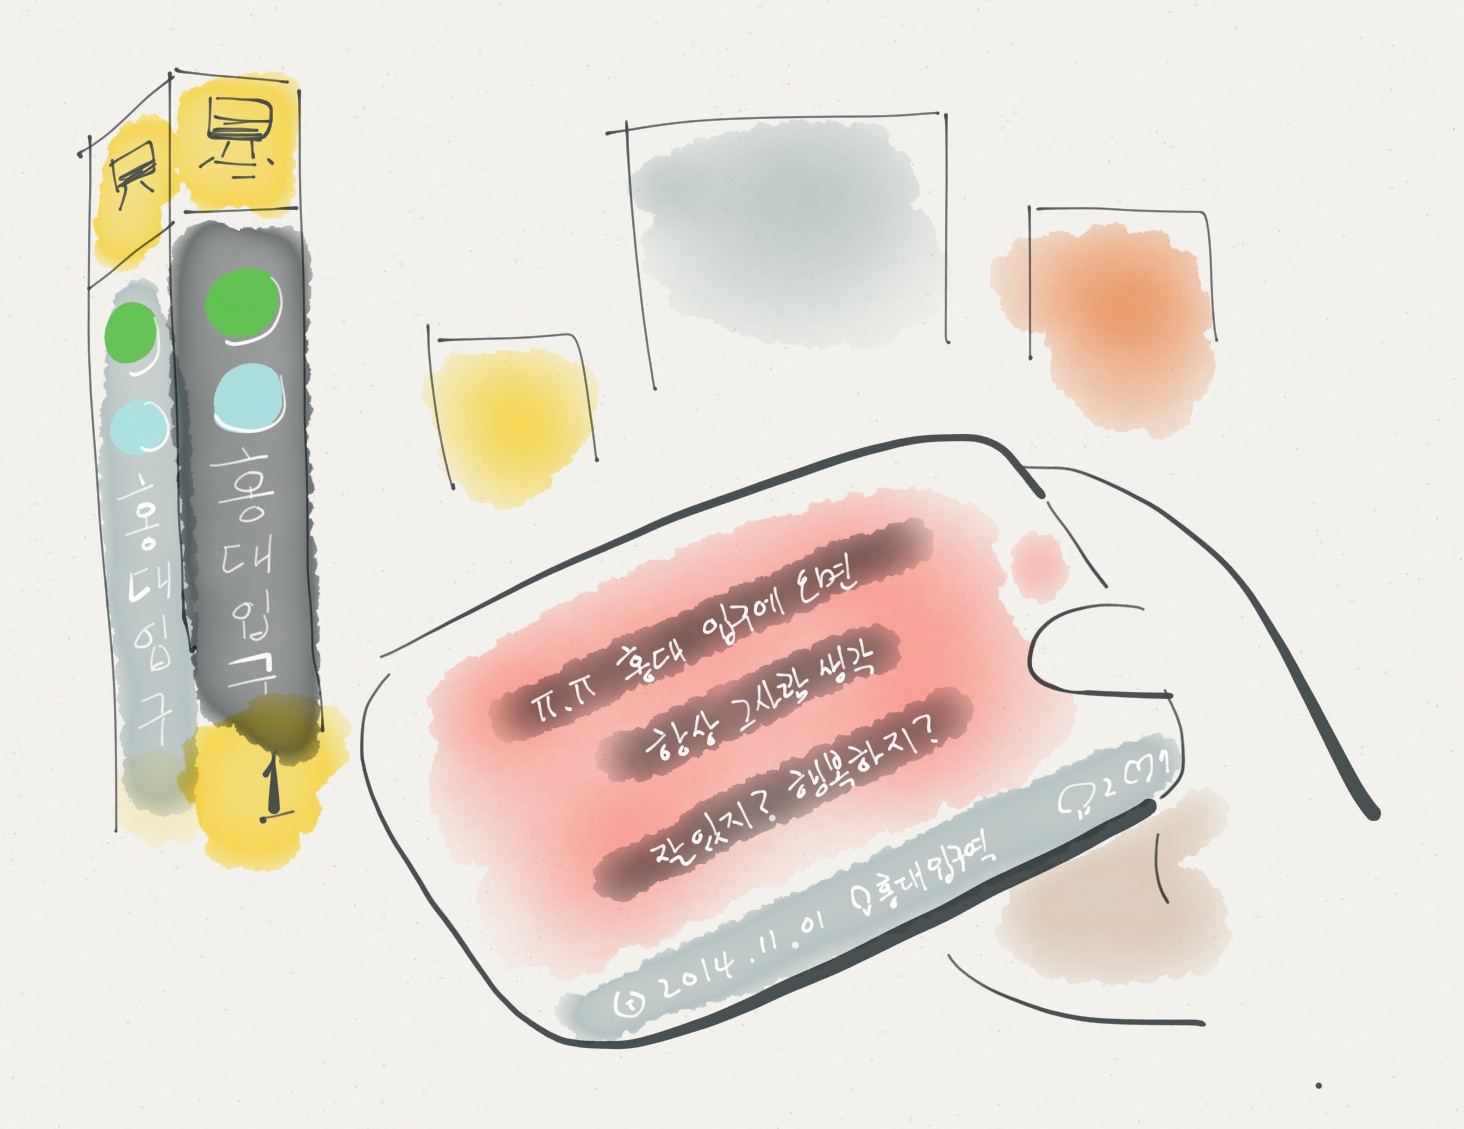 홍대입구
홍대입구
1
ㅠ.ㅠ 홍대 입구에 오면
항상 그사람 생각
잘있지? 행복하지?
2014.11.01 홍대입구역
2 9